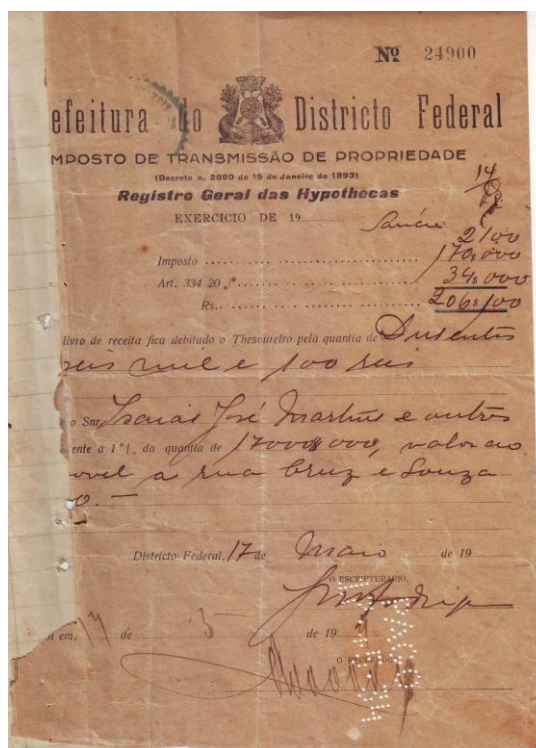 Nº 24900
efeitura do Districto Federal
MPOSTO DE TRANSMISSÃO DE PROPRIEDADE
(Decreto n. 2800 de 19 de Janeiro de 1893)
Registro Geral das Hypothecas
EXERCICIO DE 19
2100
Imposto 170$000
Art. 334 20 % 34$000
Rs. 206$100
livro de receita fica debitado o Thesoureiro pela quantia de Dusentos
seis mil e 100 reis
o Snr. Isaias José Martins e outros
ente a 1 % da quantia de 17000$000, valor do
ovel a rua Cruz e Souza
o.—
Districto Federal, 17 de Maio de 19
O ESCRIPTURARIO,
em, 17 de 5 de 19